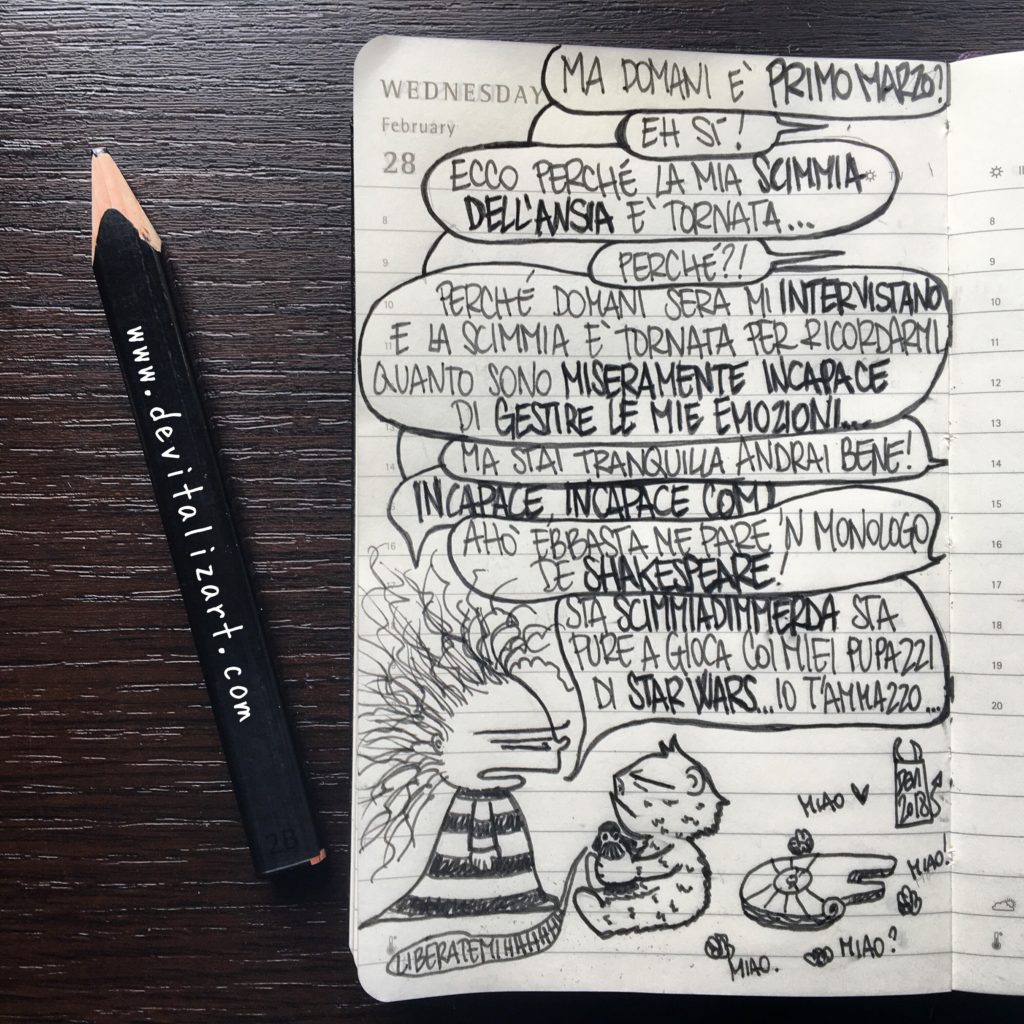 www.devitalizart.com
2B
WEDNESDAY
February
28
MA DOMANI È PRIMO MARZO?
EH SÌ!
ECCO PERCHÉ LA MIA SCIMMIA
DELL'ANSIA È TORNATA...
PERCHÉ?!
PERCHÉ DOMANI SERA MI INTERVISTANO
E LA SCIMMIA È TORNATA PER RICORDARMI
QUANTO SONO MISERAMENTE INCAPACE
DI GESTIRE LE MIE EMOZIONI...
MA STAI TRANQUILLA ANDRAI BENE!
INCAPACE, INCAPACE COM
AHÒ EBBASTA ME PARE 'N MONOLOGO
DE SHAKESPEARE!
STA SCIMMIADIMMERDA STA
PURE A GIOCA COI MIEI PUPAZZI
DI STAR WARS... IO T'AMMAZZO...
LIBERATEMI
MIAO
MIAO!
MIAO?
MIAO.
DEVI
2018
8
9
10
11
12
13
14
16
8
9
10
11
12
13
14
15
16
17
18
19
20